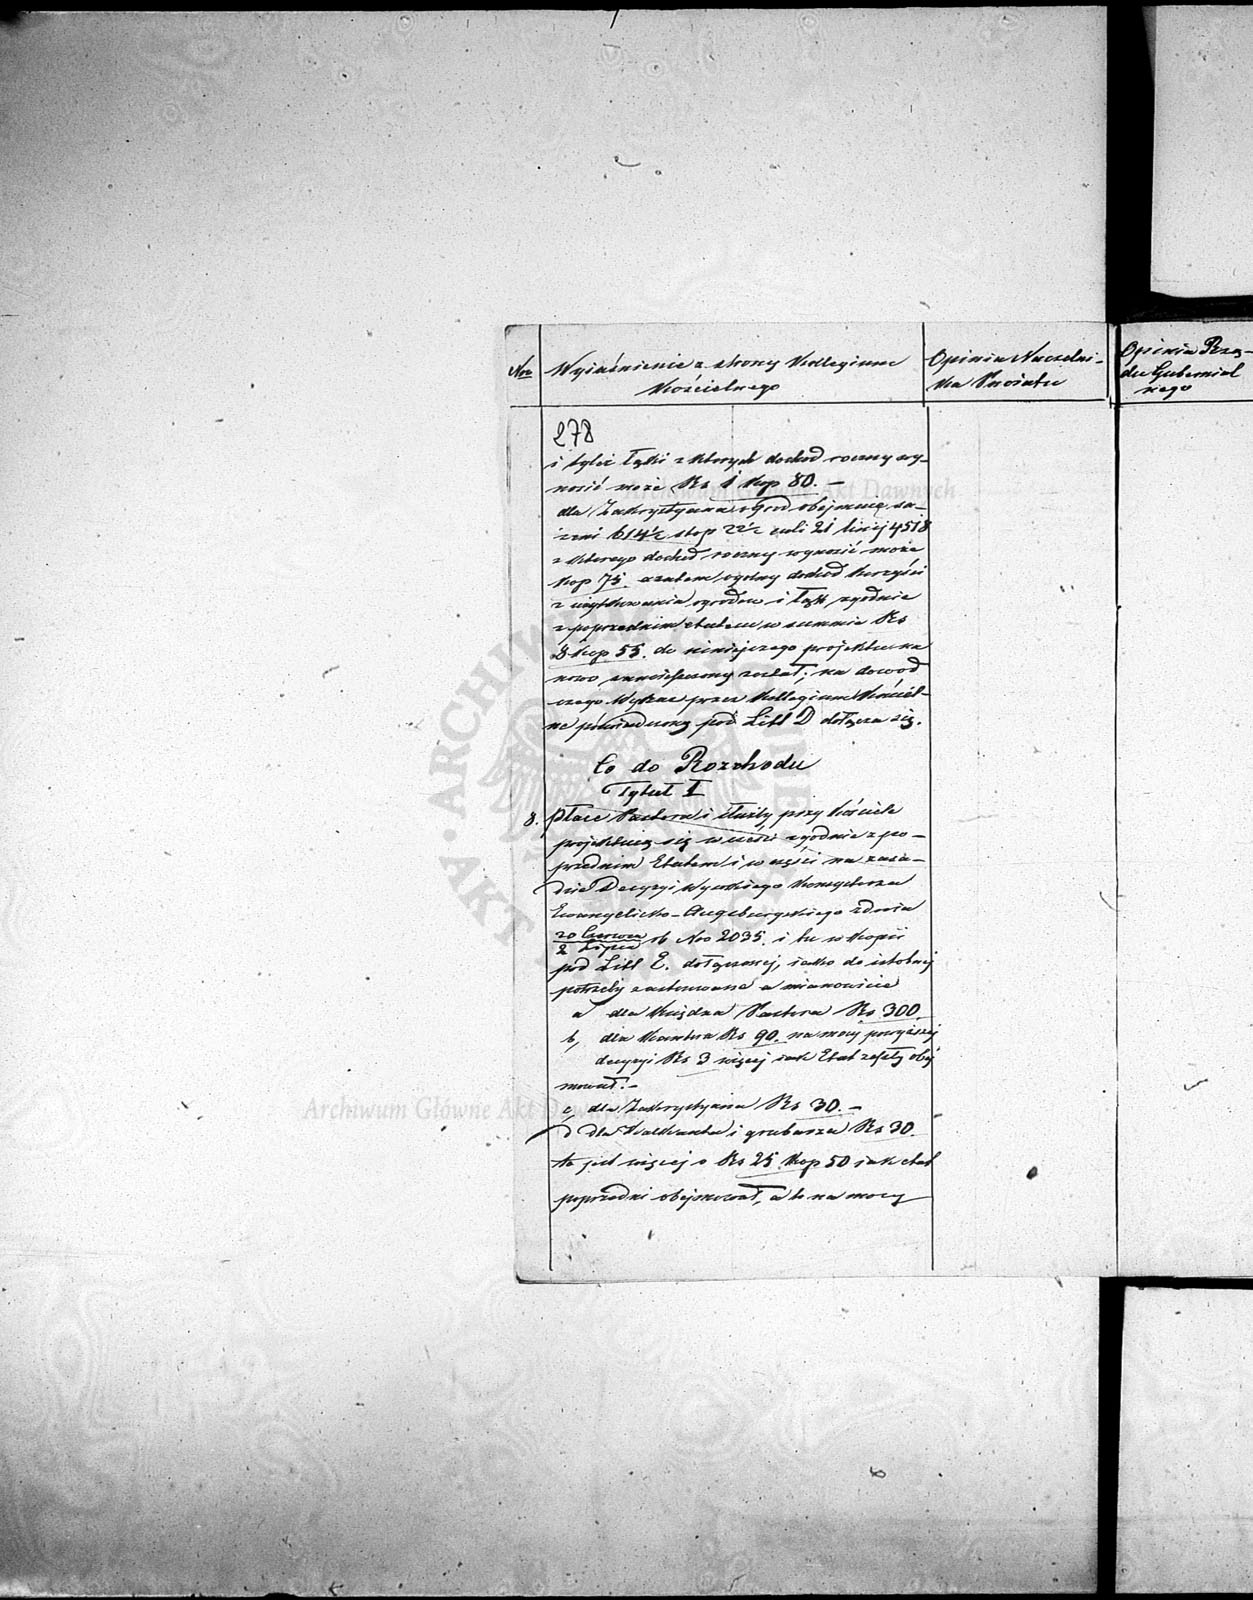 Nro
Wyjaśnienie z strony Kollegium
Kościelnego
Opinia Naczelni-
ka Powiatu
Opinia Rzą-
du Gubernial
nego
278
i tyleż łąki z których dochod roczny wy-
nosić może Rs 1 kop 80. —
dla Zakrystyana ogrod obejmuie są-
żeni 614½ stop 22½ cali 21 linij 4518
z którego dochod roczny wynosić może
kop 75. a zatem ogolny dochod korzyści
z użytkowania ogrodow i łąk zgodnie
z poprzednim etatem w summie Rs
8 kop 55. do niniejszego projektu na
nowo zamieszczony został; na dowod
czego Wykaz przez Kollegium Kościel-
ne poświadczony pod Litt D dołącza się.
Co do Rozchodu
Tytuł I
8. Płace Pastora i służby przy kościele
projektują się w części zgodnie z po-
przednim Etatem i w części na zasa-
dzie Decyzyi Wyższego Konsystorza
Ewangelicko-Augsburgskiego z dnia
20 Czerwca
2 Lipca rb Nro 2035. i tu w kopii
pod Litt E. dołączonej, jako do istotnej
potrzeby zastosowane a mianowicie
a dla Księdza Pastora Rs 300.
b, dla Kantora Rs 90. na mocy powyższej
decyzyi Rs 3 więcej jak Etat zeszły obej
mował. —
c, dla Zakrystyana Rs 30. —
d dla Kalkanta i grabarza Rs 30.
to jest więcej o Rs 25 kop 50 jak etat
poprzedni obejmował, a to na mocy
Archiwum Główne Akt Dawnych
Archiwum Główne Akt Dawnych